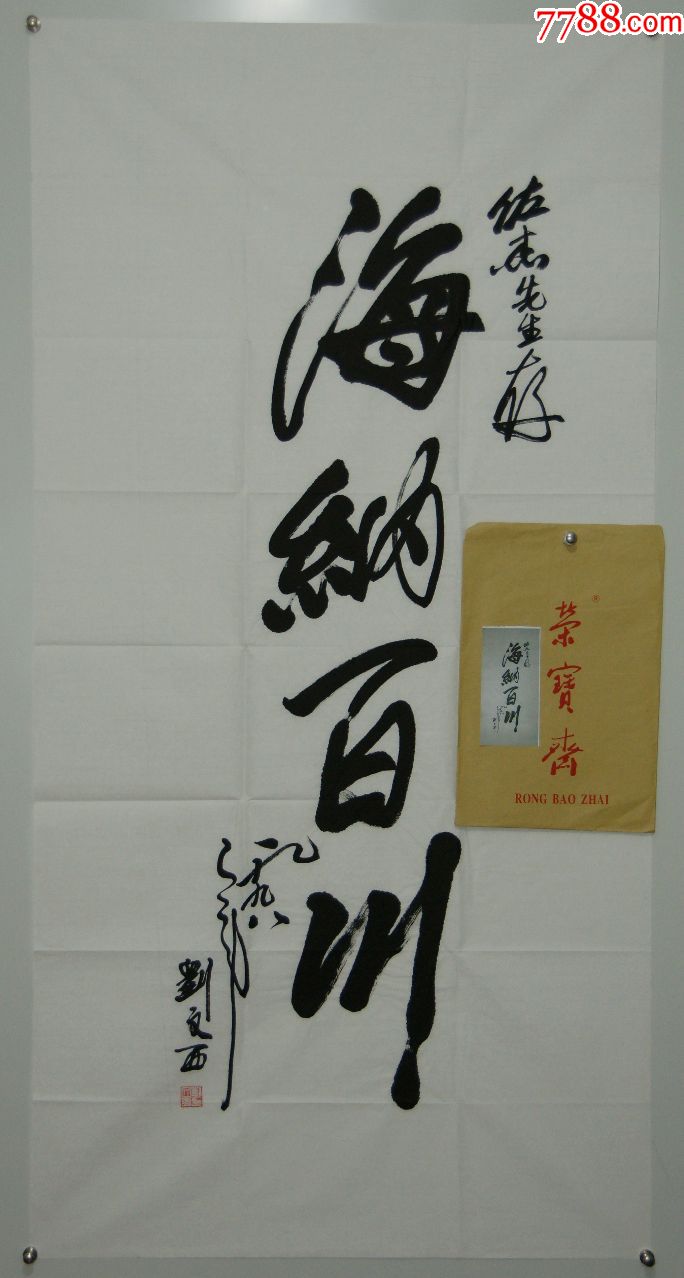 7788.com
佐杰先生存
海纳百川
一九九八
之年
劉文西
榮寶齋
®
RONG BAO ZHAI
海纳百川